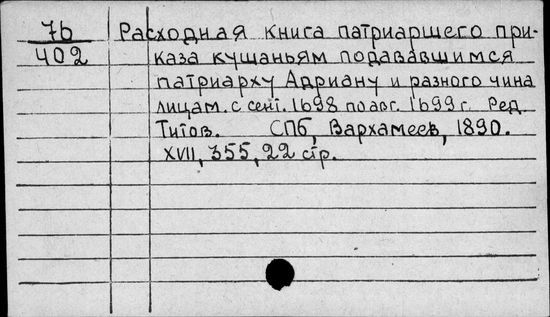 76 Расходная книга патриаршего при-
402 каза кушаньям подававшимся
патриарху Адриану и разного чина
лицам. с сент. 1698 по авг. 1699 г. Ред.
Титов. СПб, Вархамеев, 1890.
XVII, 355, 22 стр.